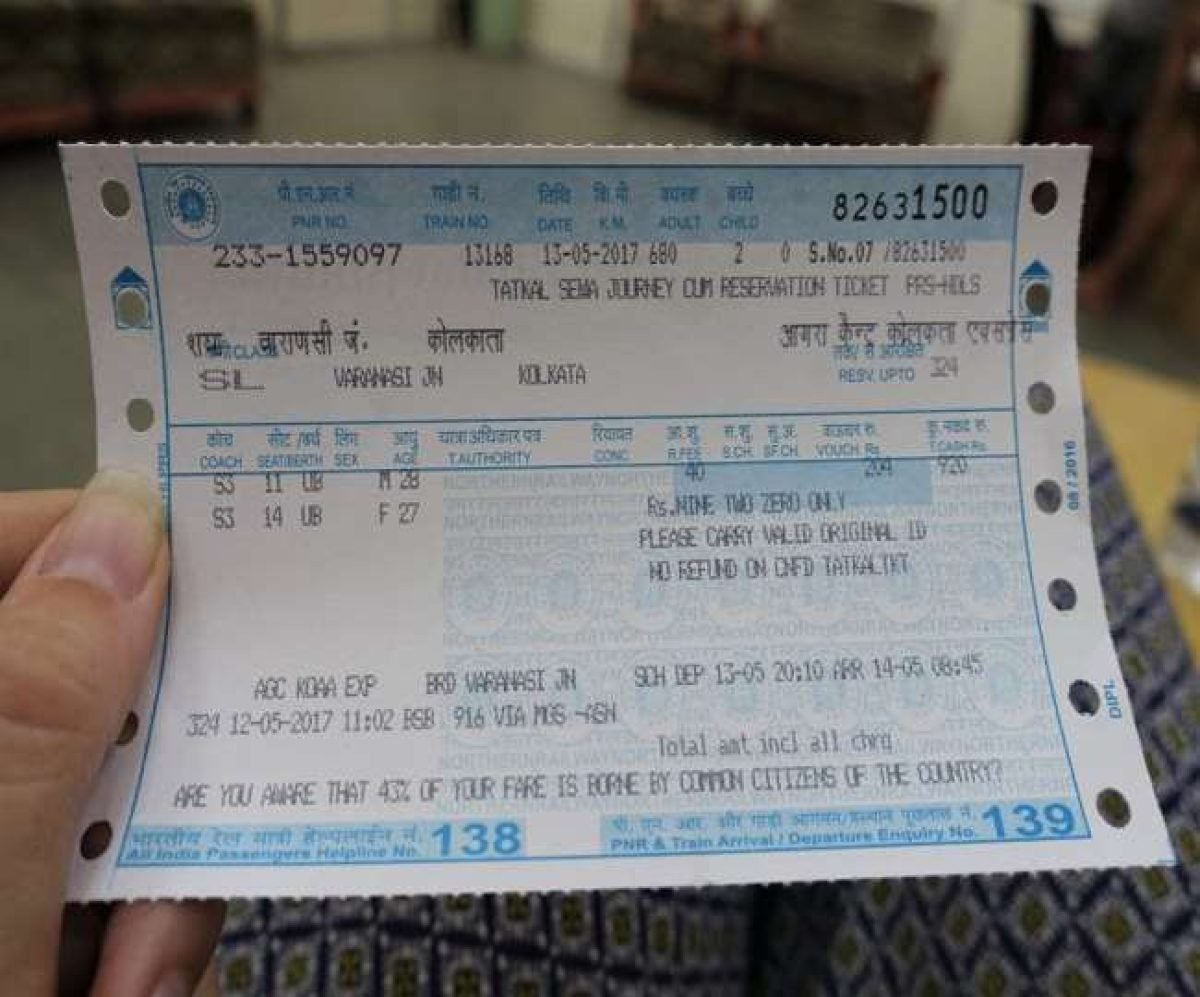 पी.एन.आर.नं. गाड़ी नं. तिथि कि.मी. वयस्क बच्चे 82631500
PNR NO. TRAIN NO. DATE K.M. ADULT CHILD
233-1559097 13168 13-05-2017 680 2 0 S.No.07 /82631500
TATKAL SEWA JOURNEY CUM RESERVATION TICKET PRS-HDLS
वाराणसी जं. कोलकाता आगरा कैन्ट कोलकता एक्सप्रेस
SL VARANASI JN KOLKATA RESV. UPTO 324
कोच सीट /बर्थ लिंग आयु यात्रा अधिकार पत्र रियायत आ.शु. स.शु. सु.अ. वाऊचर रु. कु.नकद रु.
COACH SEAT/BERTH SEX AGE T.AUTHORITY CONC. R.FEE S.CH. SF.CH. VOUCH Rs. T.CASH Rs.
S3 11 UB M 28 40 204 920
Rs.NINE TWO ZERO ONLY
S3 14 UB F 27
PLEASE CARRY VALID ORIGINAL ID
NO REFUND ON CNFD TATKALTKT
AGC KOAA EXP BRD VARANASI JN SCH DEP 13-05 20:10 ARR 14-05 08:45
324 12-05-2017 11:02 BSB 916 VIA MGS -ASN
Total amt incl all chrg
ARE YOU AWARE THAT 43% OF YOUR FARE IS BORNE BY COMMON CITIZENS OF THE COUNTRY?
भारतीय रेल यात्री हेल्पलाईन नं. 138 पी. एन. आर. और गाड़ी आगमन/प्रस्थान पूछताछ नं. 139
All India Passengers Helpline No. PNR & Train Arrival / Departure Enquiry No.
08 / 2016
DIPL